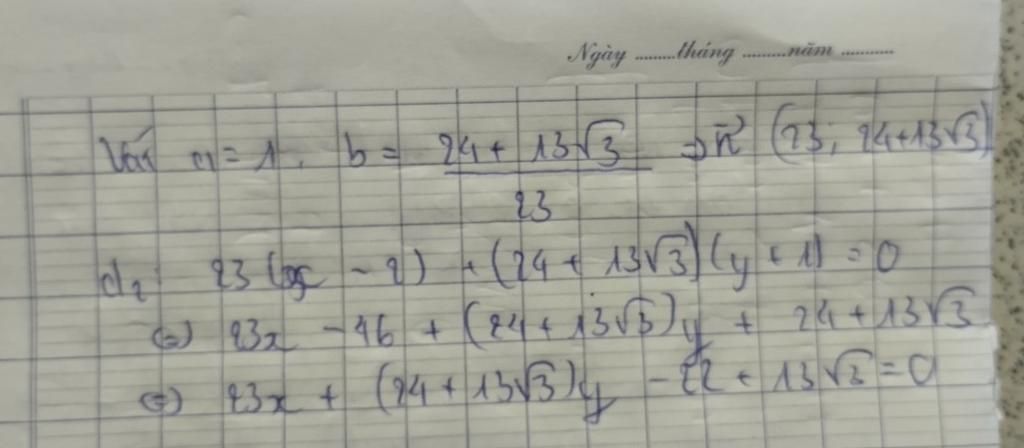 Ngày ........tháng .........năm ..........
Với a = 1, b = \frac{24 + 13\sqrt{3}}{23} => \vec{n} (23; 24+13√3)
d₂: 23(x - 2) + (24 + 13√3)(y + 1) = 0
(=) 23x - 46 + (24 + 13√3)y + 24 + 13√3
(=) 23x + (24 + 13√3)y - 22 + 13√3 = 0